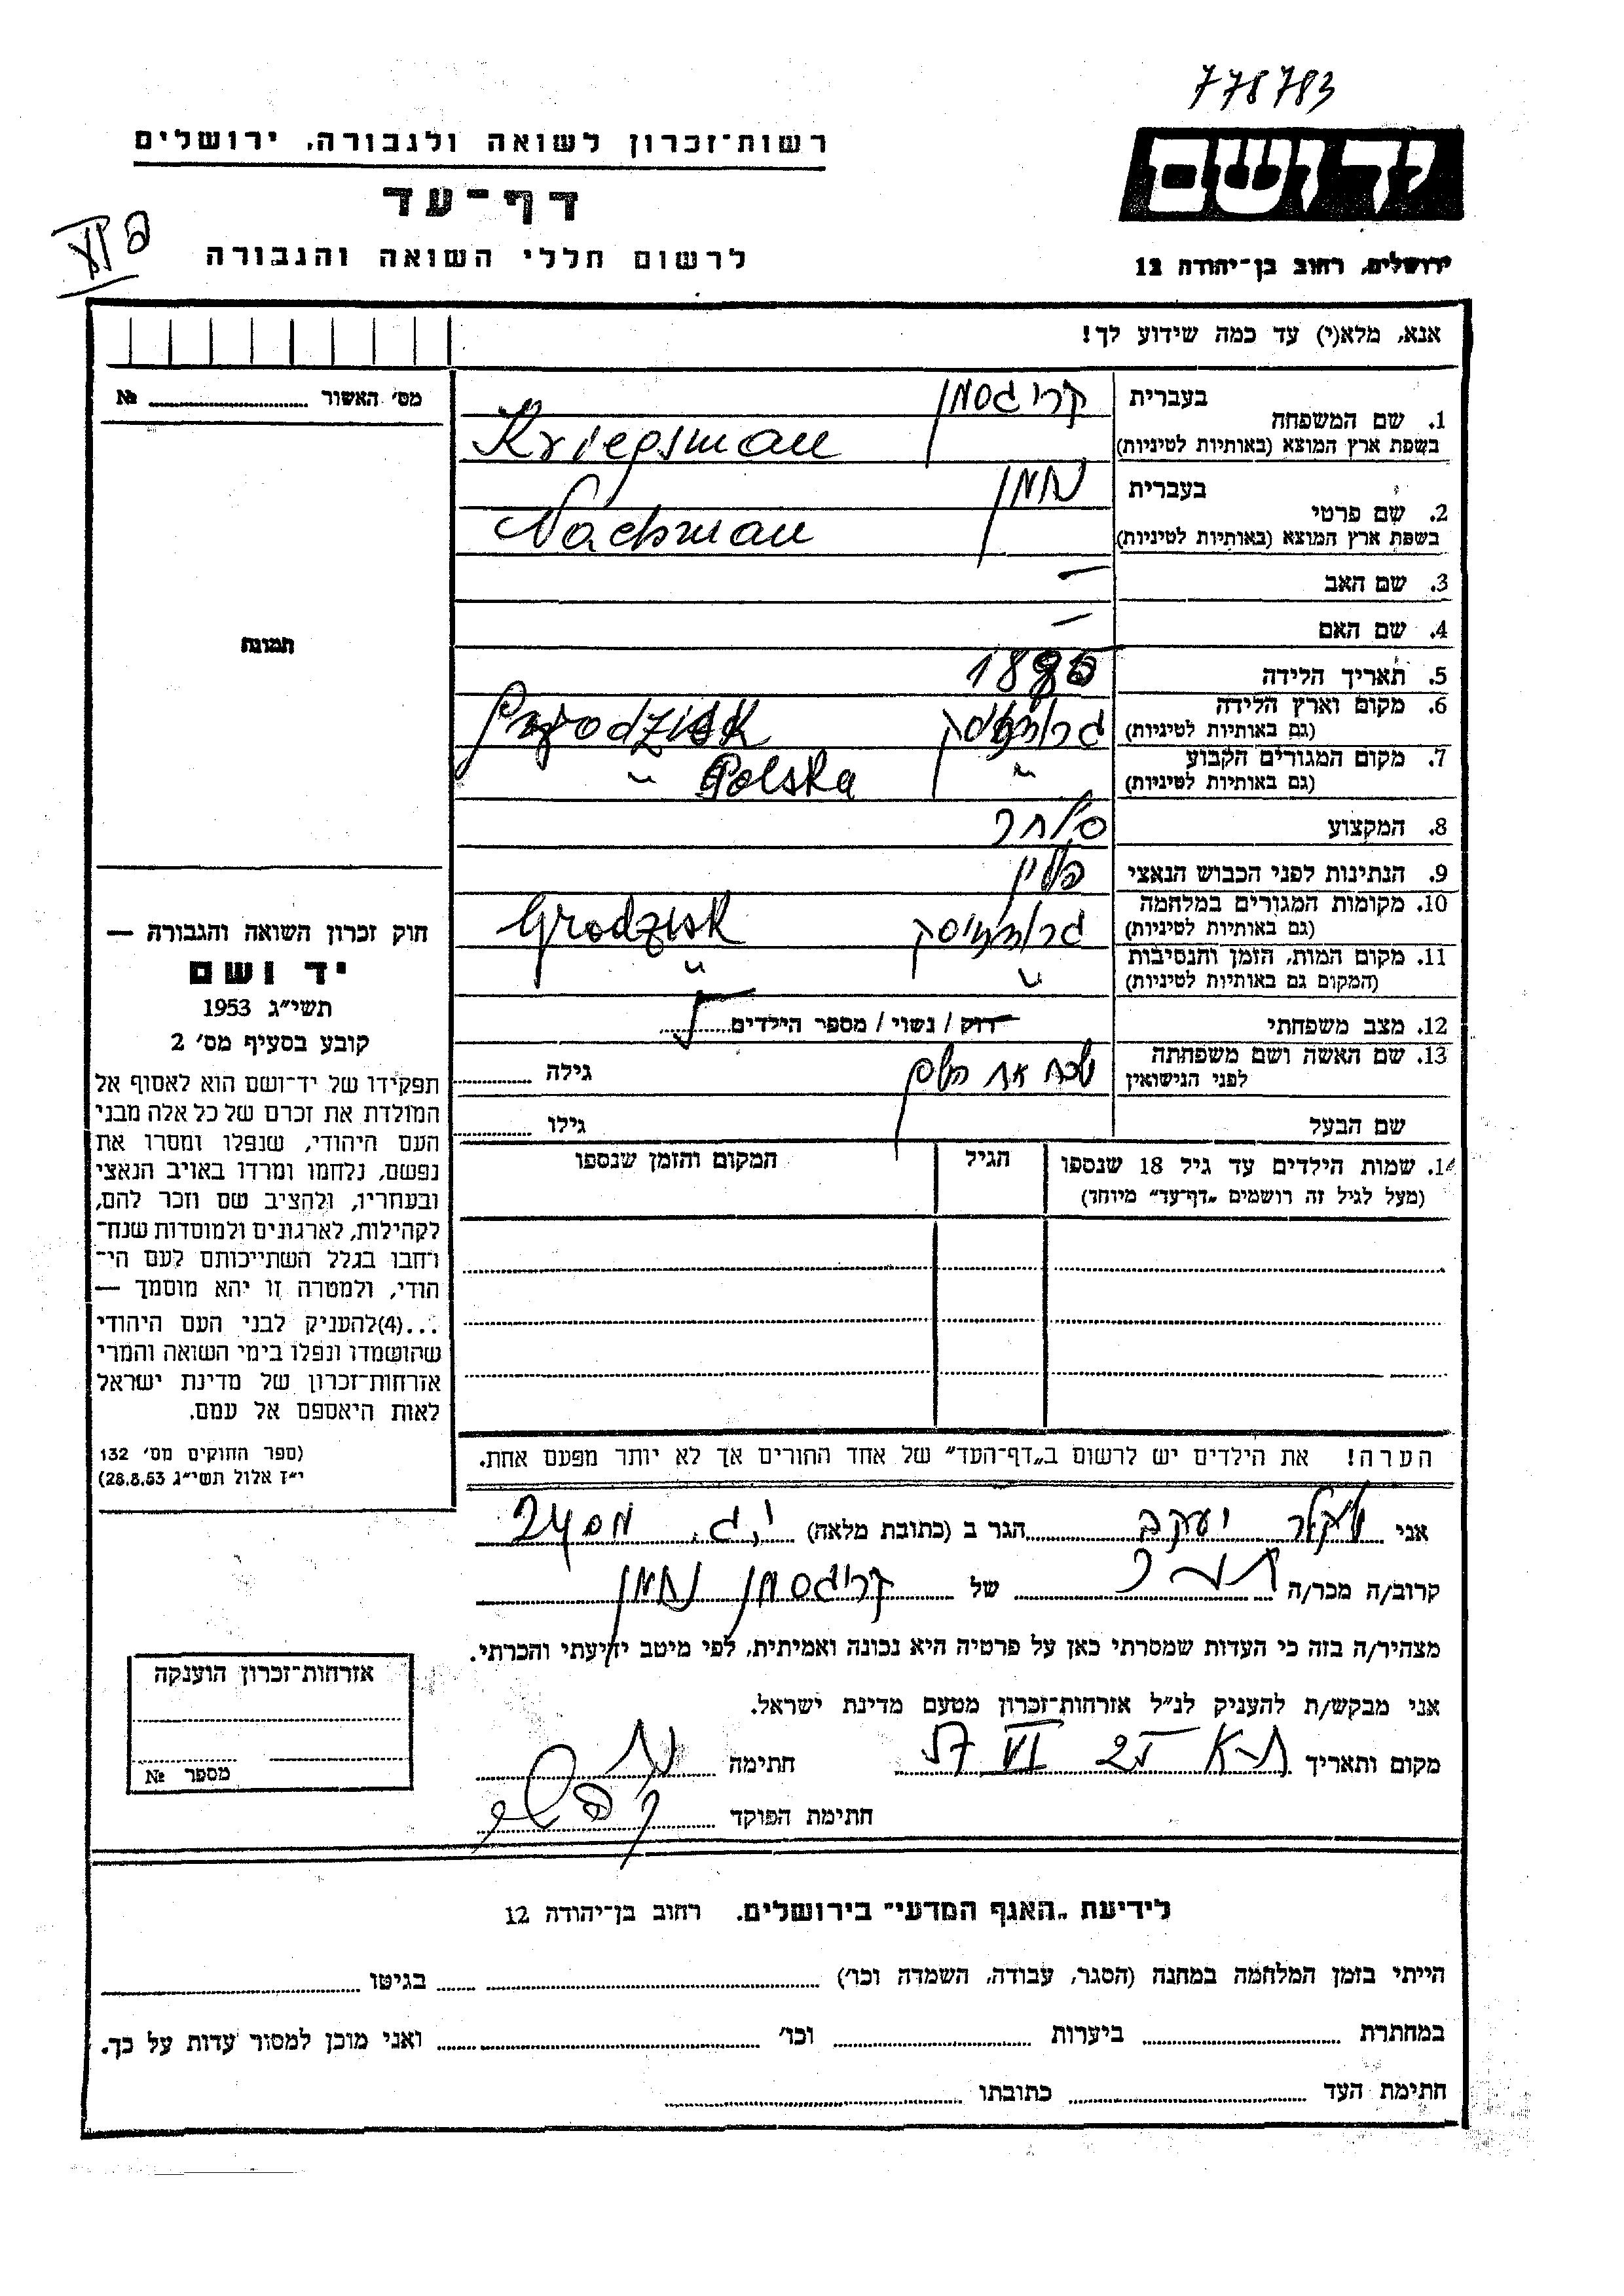 778783
יד ושם
רשות־זכרון לשואה ולגבורה, ירושלים
דף־עד
לרשום חללי השואה והגבורה
ירושלים, רחוב בן־יהודה 12
אנא, מלא(י) עד כמה שידוע לך!
מס׳ האשור № 
בעברית קריגסמן
1. שם המשפחה
בשפת ארץ המוצא (באותיות לטיניות) Kriegsman
בעברית נחמן
2. שם פרטי
בשפת ארץ המוצא (באותיות לטיניות) Nachman
3. שם האב –
4. שם האם –
5. תאריך הלידה
6. מקום וארץ הלידה
(גם באותיות לטיניות)
7. מקום המגורים הקבוע
(גם באותיות לטיניות) " Polska "
8. המקצוע סוחר
9. הנתינות לפני הכבוש הנאצי פולין
10. מקומות המגורים במלחמה
(גם באותיות לטיניות) Grodzisk
11. מקום המות, הזמן והנסיבות
(המקום גם באותיות לטיניות) " "
12. מצב משפחתי רוק / נשוי / מספר הילדים 5
13. שם האשה ושם משפחתה
לפני הנישואין שכח את השם גילה
שם הבעל גילו
14. שמות הילדים עד גיל 18 שנספו
(מעל לגיל זה רושמים „דף־עד” מיוחד)
הגיל
המקום והזמן שנספו
תמונה
חוק זכרון השואה והגבורה —
יד ושם
תשי״ג 1953
קובע בסעיף מס׳ 2
תפקידו של יד־ושם הוא לאסוף אל
המולדת את זכרם של כל אלה מבני
העם היהודי, שנפלו ומסרו את
נפשם, נלחמו ומרדו באויב הנאצי
ובעוזריו, ולהציב שם וזכר להם,
לקהילות, לארגונים ולמוסדות שנח־
רחבו בגלל השתייכותם לעם הי־
הודי, ולמטרה זו יהא מוסמך —
...(4)להעניק לבני העם היהודי
שהושמדו ונפלו בימי השואה והמרי
אזרחות־זכרון של מדינת ישראל
לאות היאספם אל עמם.
(ספר החוקים מס׳ 132
י״ז אלול תשי״ג 28.8.53)
הערה! את הילדים יש לרשום ב„דף־העד” של אחד ההורים אך לא יותר מפעם אחת.
אני יעקב הגר ב (כתובת מלאה) 24
קרוב/ה מכר/ה חבר של קריגסמן נחמן
מצהיר/ה בזה כי העדות שמסרתי כאן על פרטיה היא נכונה ואמיתית, לפי מיטב ידיעתי והכרתי.
אני מבקש/ת להעניק לנ״ל אזרחות־זכרון מטעם מדינת ישראל.
מקום ותאריך ת-א VI 57 חתימה
חתימת הפוקד
אזרחות־זכרון הוענקה
מספר №
לידיעת „האגף המדעי” בירושלים, רחוב בן־יהודה 12
הייתי בזמן המלחמה במחנה (הסגר, עבודה, השמדה וכו׳) בגיטו
במחתרת ביערות וכו׳ ואני מוכן למסור עדות על כך.
חתימת העד כתובתו